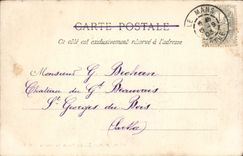 CARTE POSTALE
Ce côté est exclusivement réservé à l'adresse
LE MANS
Monsieur G.
Chateau du Gd Beauvais
St Georges du Bois
(Sarthe)